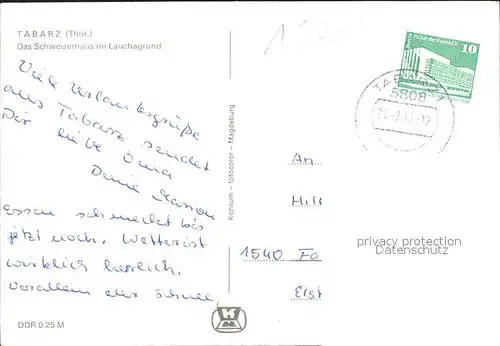 TABARZ (Thür.)
Das Schweizerhaus im Lauchagrund
Viele Urlaubsgrüße
aus Tabarz sendet
Dir liebe Oma
Deine
Essen schmeckt bis
jetzt noch. Wetter ist
wirklich herrlich.
vorallem der Schnee,
DDR 0.25 M
Konsum - fotocolor - Magdeburg
10
TABARZ 1
5808
An
1540 Fa
privacy protection
Datenschutz